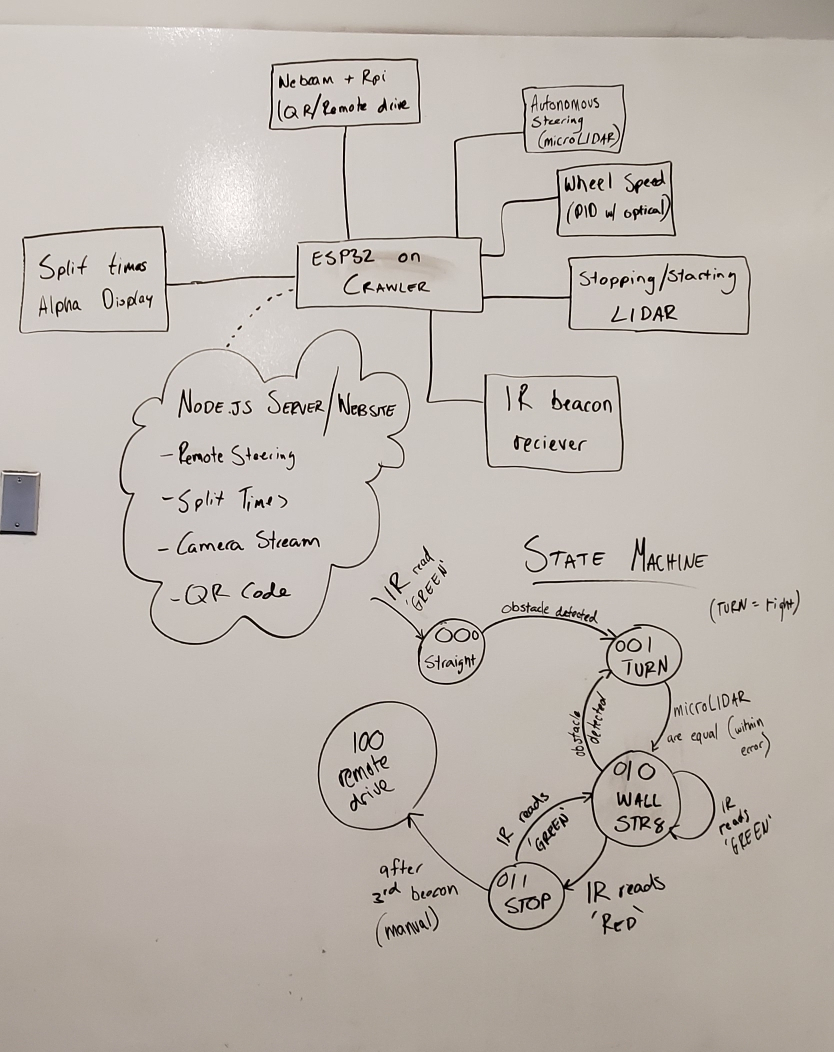 Webcam + Rpi
(QR/Remote drive
Autonomous
Steering
(microLIDAR)
Wheel Speed
(PID w/ optical)
Split times
Alpha Display
ESP32 on
CRAWLER
Stopping/Starting
LIDAR
IR beacon
reciever
NODE.JS SERVER/WEBSITE
- Remote Steering
- Split Times
- Camera Stream
- QR Code
STATE MACHINE
(TURN = right)
IR read
'GREEN'
000
Straight
obstacle detected
001
TURN
microLIDAR
are equal (within
error)
obstacle
detected
010
WALL
STR8
IR
reads
'GREEN'
100
remote
drive
IR reads
'GREEN'
011
STOP
IR reads
'RED'
after
3rd beacon
(manual)